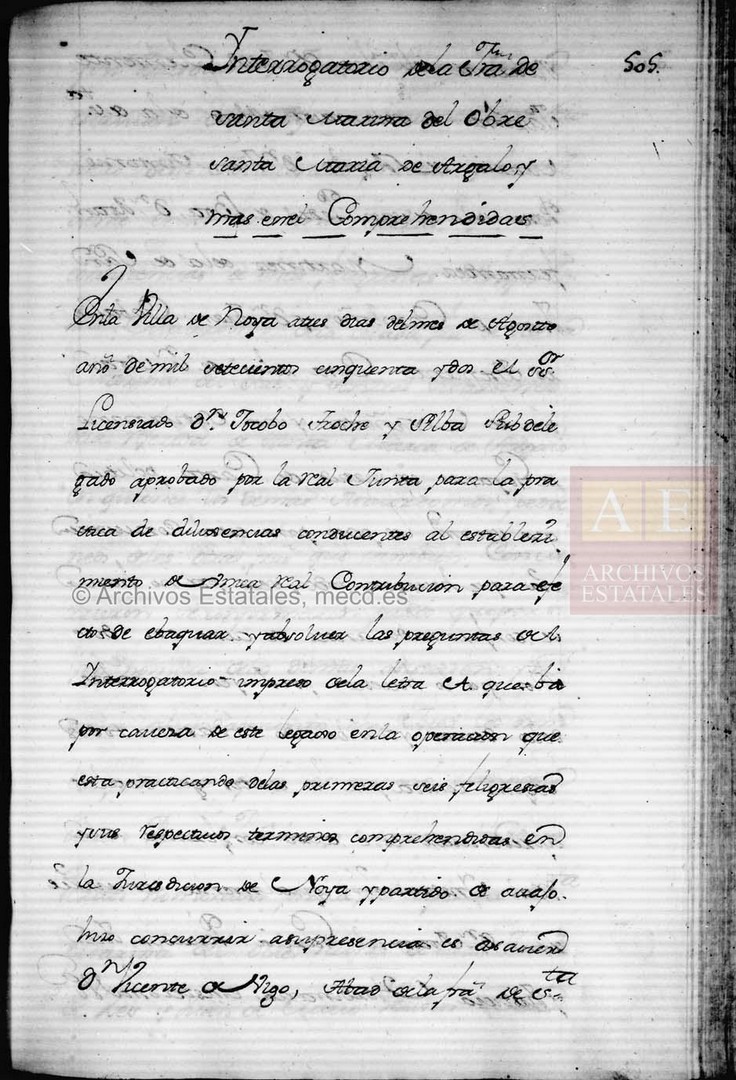 505.
Interrogatorio de la fra de
Santa Marina del Obre
Santa Maria de Argalo, y
mas en el Comprehendidas
Enla Villa de Noya atres dias del mes de Agosto
año de mil setecientos cinquenta y dos. el Sor
Licenciado Dn. Jacobo Troche y Silba Subdele
gado aprobado por la real Junta para la pra
ctica de dilixencias conducentes al estableci
miento de Unica real Contribucion para efe
cto de ebaquar y absolver las preguntas del
Interrogatorio impreso dela letra A. que ba
por caveza de este legajo en la operacion que
esta practicando delas primeras seis feligresias
y sus respectivos terminos comprehendidas en
la Jurisdicion de Noya y partido de
hizo concurrir asu presencia es asaver
Dn Vicente de Vigo, Abad dela fra de Sta
© Archivos Estatales, mecd.es
AE
ARCHIVOS
ESTATALES